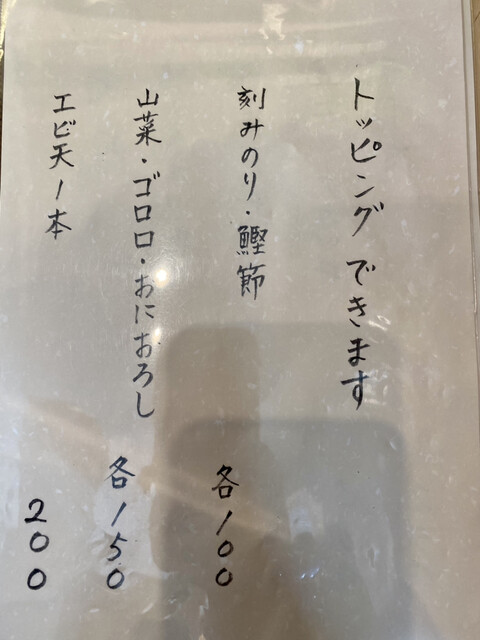 トッピングできます
刻みのり・鰹節 各100
山菜・ゴロロ・おにおろし 各150
エビ天1本 200